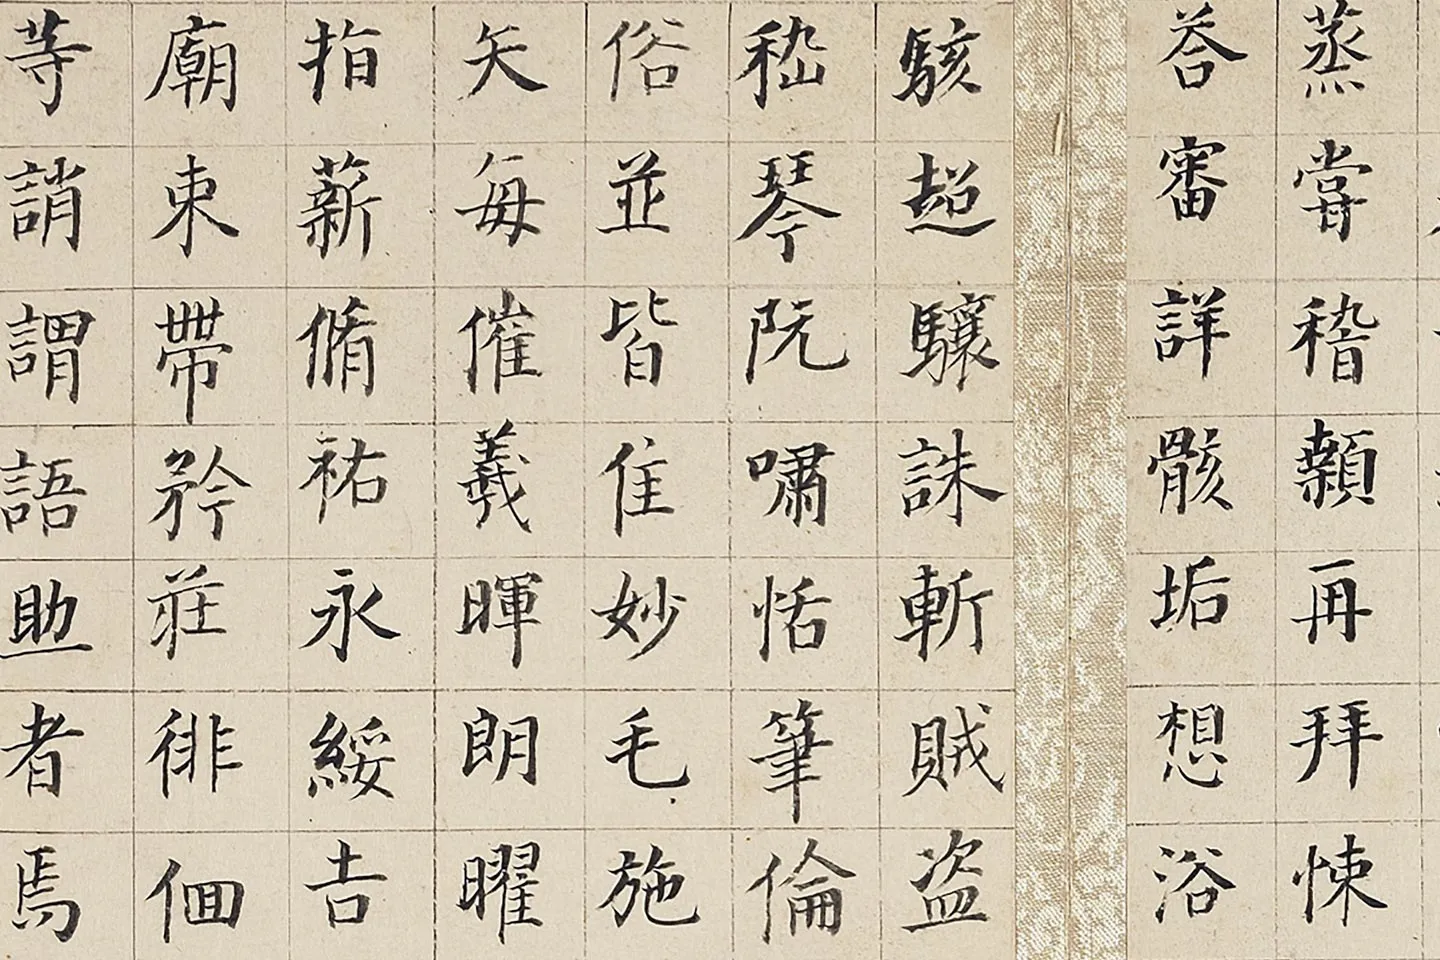 蒸嘗稽顙再拜悚
荅審詳骸垢想浴
駭超驤誅斬賊盜
嵇琴阮嘯恬筆倫
俗並皆佳妙毛施
矢每催羲暉朗曜
指薪脩祐永綏吉
廟束帶矜莊徘佪
等誚謂語助者焉